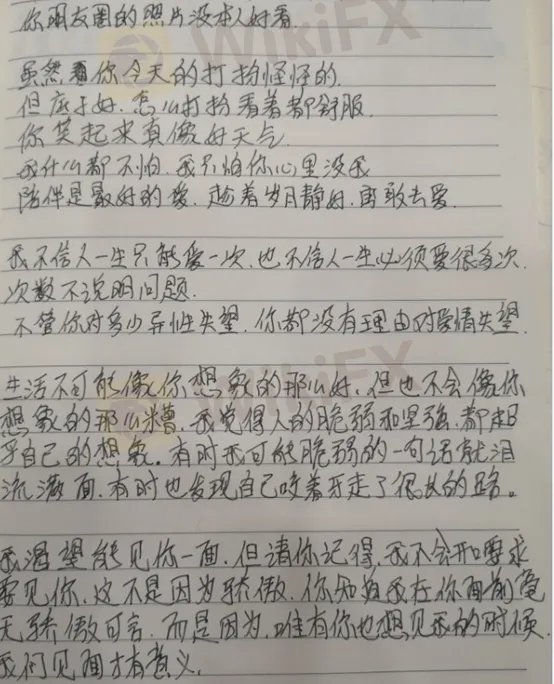 你朋友圈的照片没本人好看
虽然看你今天的打扮怪怪的
但底子好.怎么打扮看着都舒服.
你笑起来真像好天气
我什么都不怕.我只怕你心里没我
陪伴是最好的爱.趁着岁月静好.勇敢去爱.
我不信人一生只能爱一次.也不信人一生必须爱很多次.
次数不说明问题.
不管你对多少异性失望.你都没有理由对爱情失望.
生活不可能像你想象的那么好.但也不会像你
想象的那么糟.我觉得人的脆弱和坚强.都超
乎自己的想象.有时我可能脆弱的一句话就泪
流满面.有时也发现自己咬着牙走了很长的路。
我渴望能见你一面.但请你记得.我不会开口要求
要见你.这不是因为骄傲.你知道我在你面前毫
无骄傲可言.而是因为.唯有你也想见我的时候.
我们见面才有意义.
WikiFX
WikiFX
WikiFX